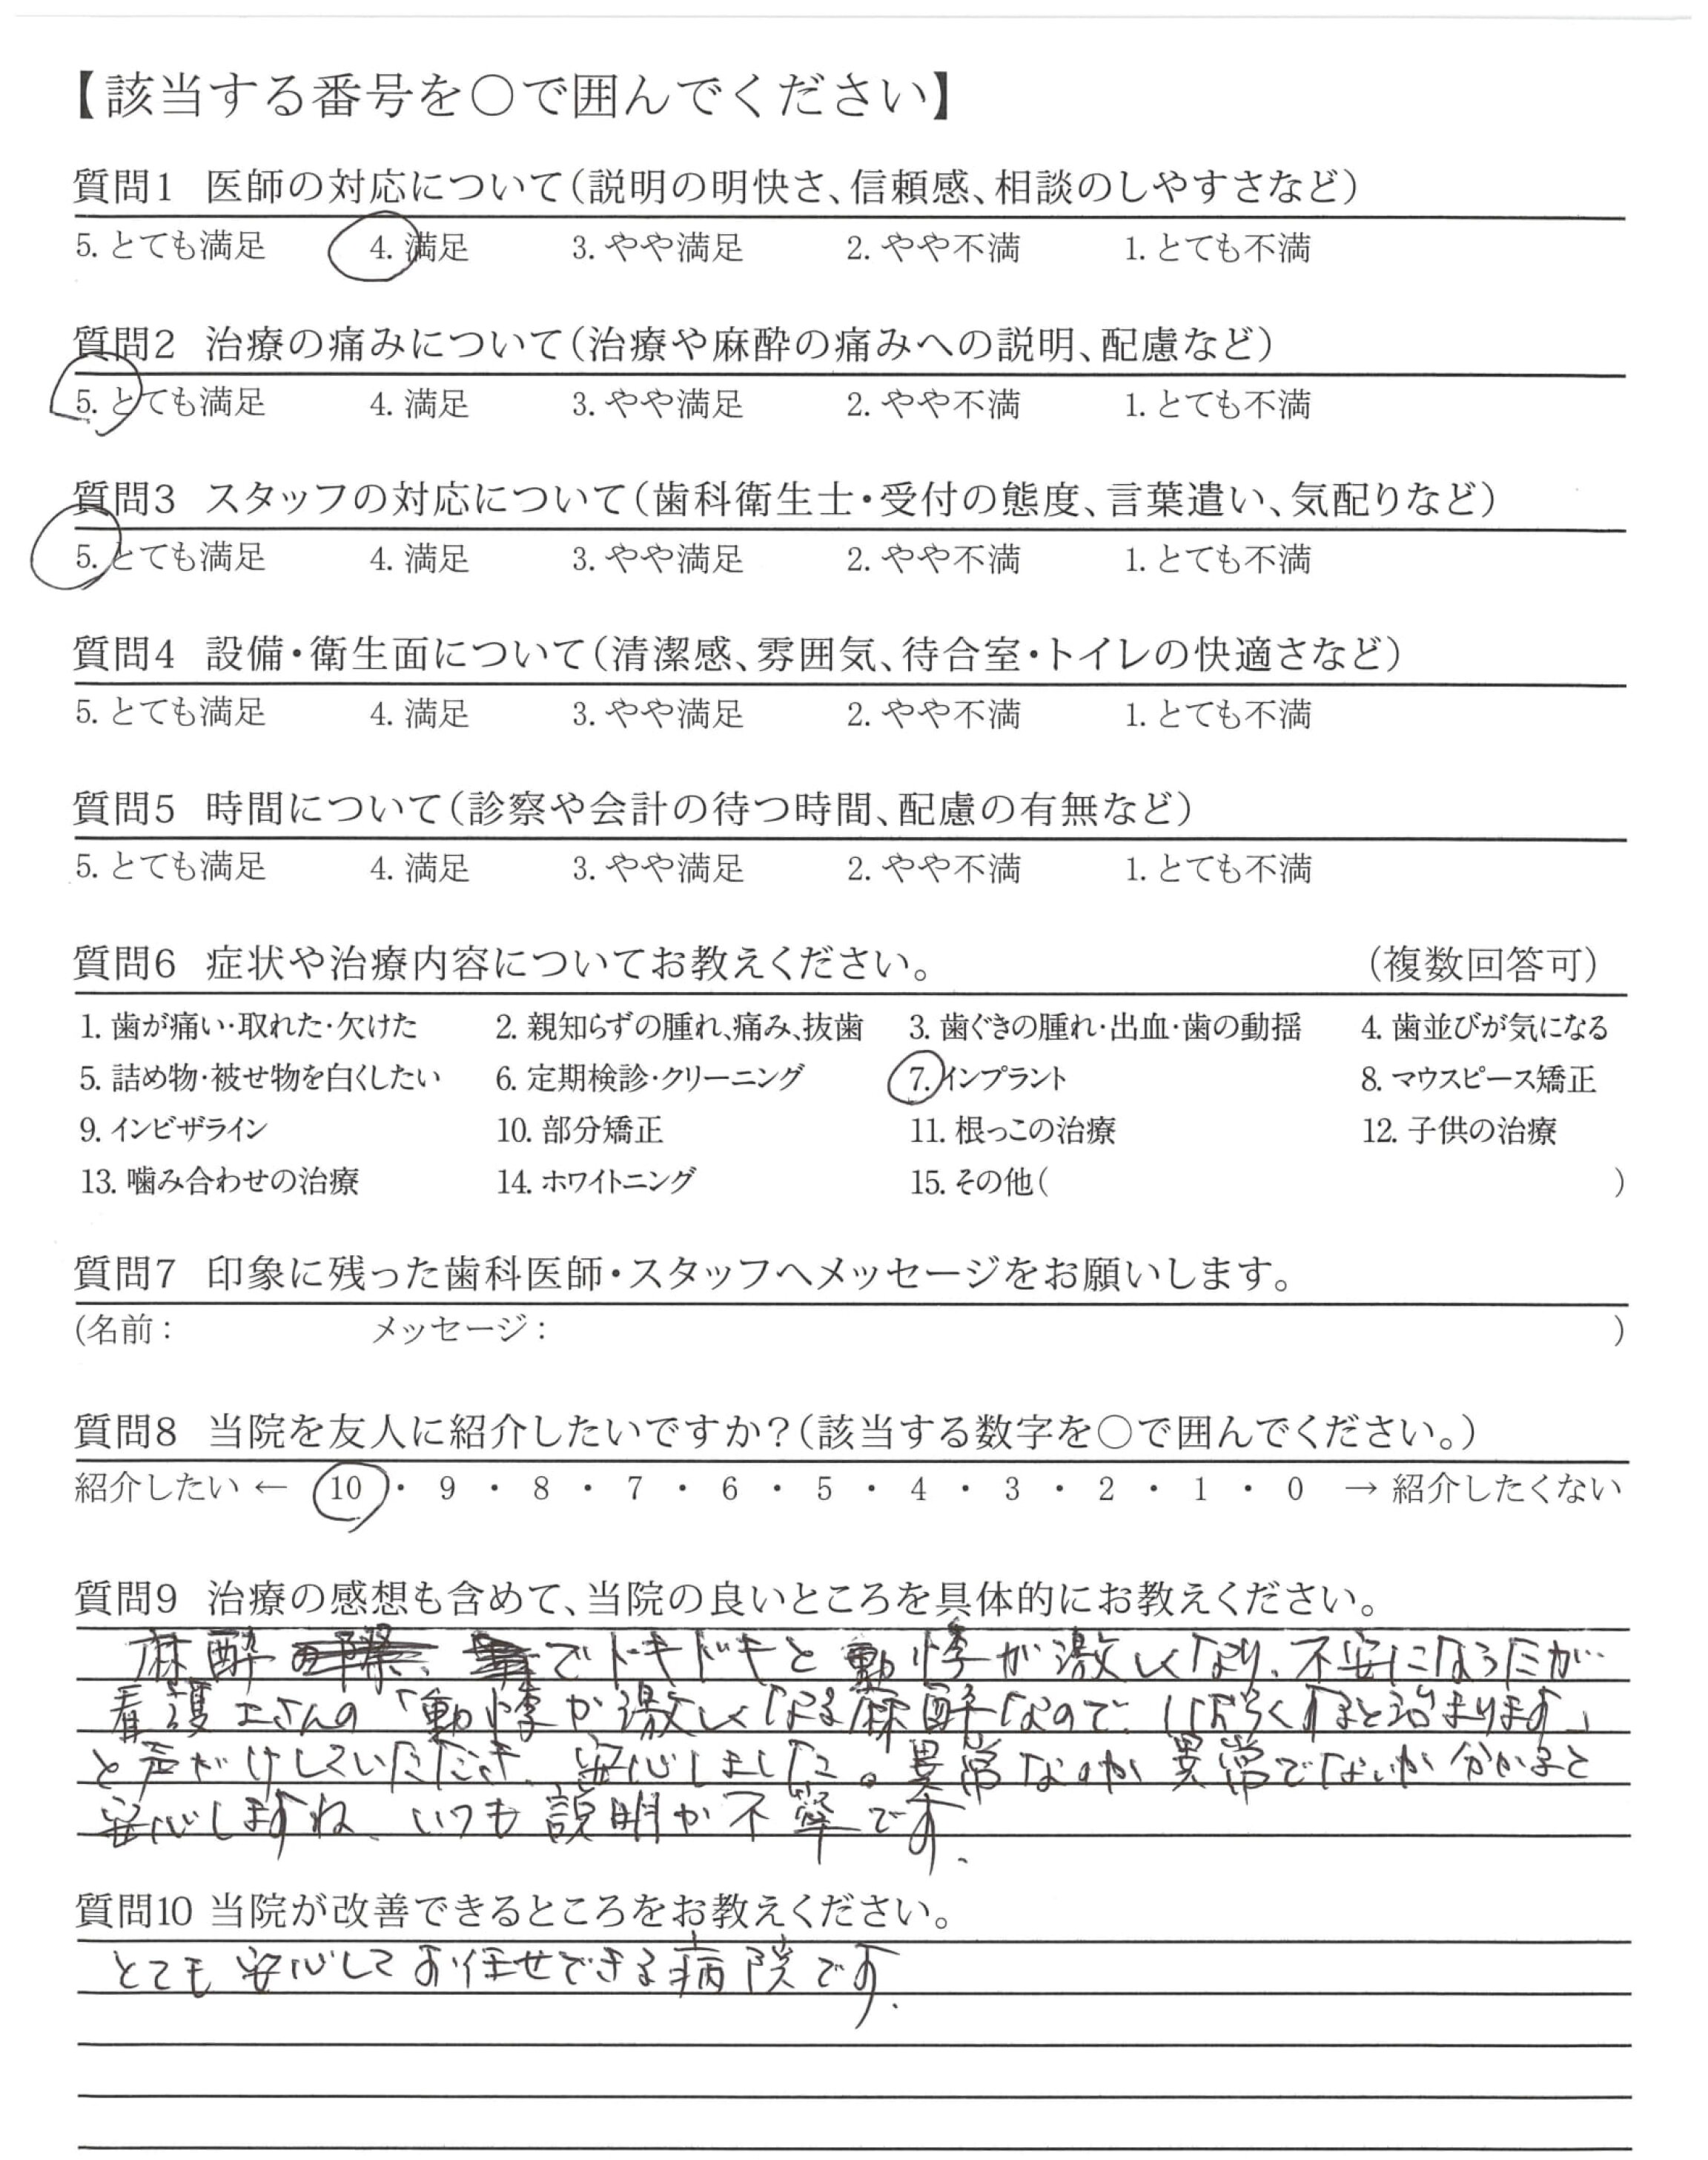 【該当する番号を○で囲んでください】
質問1 医師の対応について(説明の明快さ、信頼感、相談のしやすさなど)
5. とても満足 4. 満足 3. やや満足 2. やや不満 1. とても不満
質問2 治療の痛みについて(治療や麻酔の痛みへの説明、配慮など)
5. とても満足 4. 満足 3. やや満足 2. やや不満 1. とても不満
質問3 スタッフの対応について(歯科衛生士・受付の態度、言葉遣い、気配りなど)
5. とても満足 4. 満足 3. やや満足 2. やや不満 1. とても不満
質問4 設備・衛生面について(清潔感、雰囲気、待合室・トイレの快適さなど)
5. とても満足 4. 満足 3. やや満足 2. やや不満 1. とても不満
質問5 時間について(診察や会計の待つ時間、配慮の有無など)
5. とても満足 4. 満足 3. やや満足 2. やや不満 1. とても不満
質問6 症状や治療内容についてお教えください。 (複数回答可)
1. 歯が痛い・取れた・欠けた 2. 親知らずの腫れ、痛み、抜歯 3. 歯ぐきの腫れ・出血・歯の動揺 4. 歯並びが気になる
5. 詰め物・被せ物を白くしたい 6. 定期検診・クリーニング 7. インプラント 8. マウスピース矯正
9. インビザライン 10. 部分矯正 11. 根っこの治療 12. 子供の治療
13. 噛み合わせの治療 14. ホワイトニング 15. その他( )
質問7 印象に残った歯科医師・スタッフへメッセージをお願いします。
(名前: メッセージ: )
質問8 当院を友人に紹介したいですか?(該当する数字を○で囲んでください。)
紹介したい ← 10 ・ 9 ・ 8 ・ 7 ・ 6 ・ 5 ・ 4 ・ 3 ・ 2 ・ 1 ・ 0 → 紹介したくない
質問9 治療の感想も含めて、当院の良いところを具体的にお教えください。
麻酔でドキドキと動悸が激しくなり、不安になったが…
看護士さんの「動悸が激しくなる麻酔なので、しばらくすると治まります」
と声がけしていただき、安心しました。異常なのか異常でないか分かると
安心しますね、いつも説明が丁寧です.
質問10 当院が改善できるところをお教えください。
とても安心してお任せできる病院です.